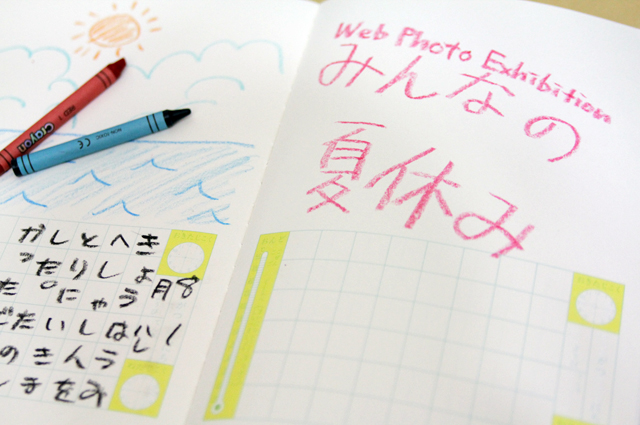 Web Photo Exhibition
みんなの
夏休み
8月
きょうは、うみ
へしゃしんを
とりにいきま
した。たのし
かった
Crayon
RED
NON-TOXIC
CE